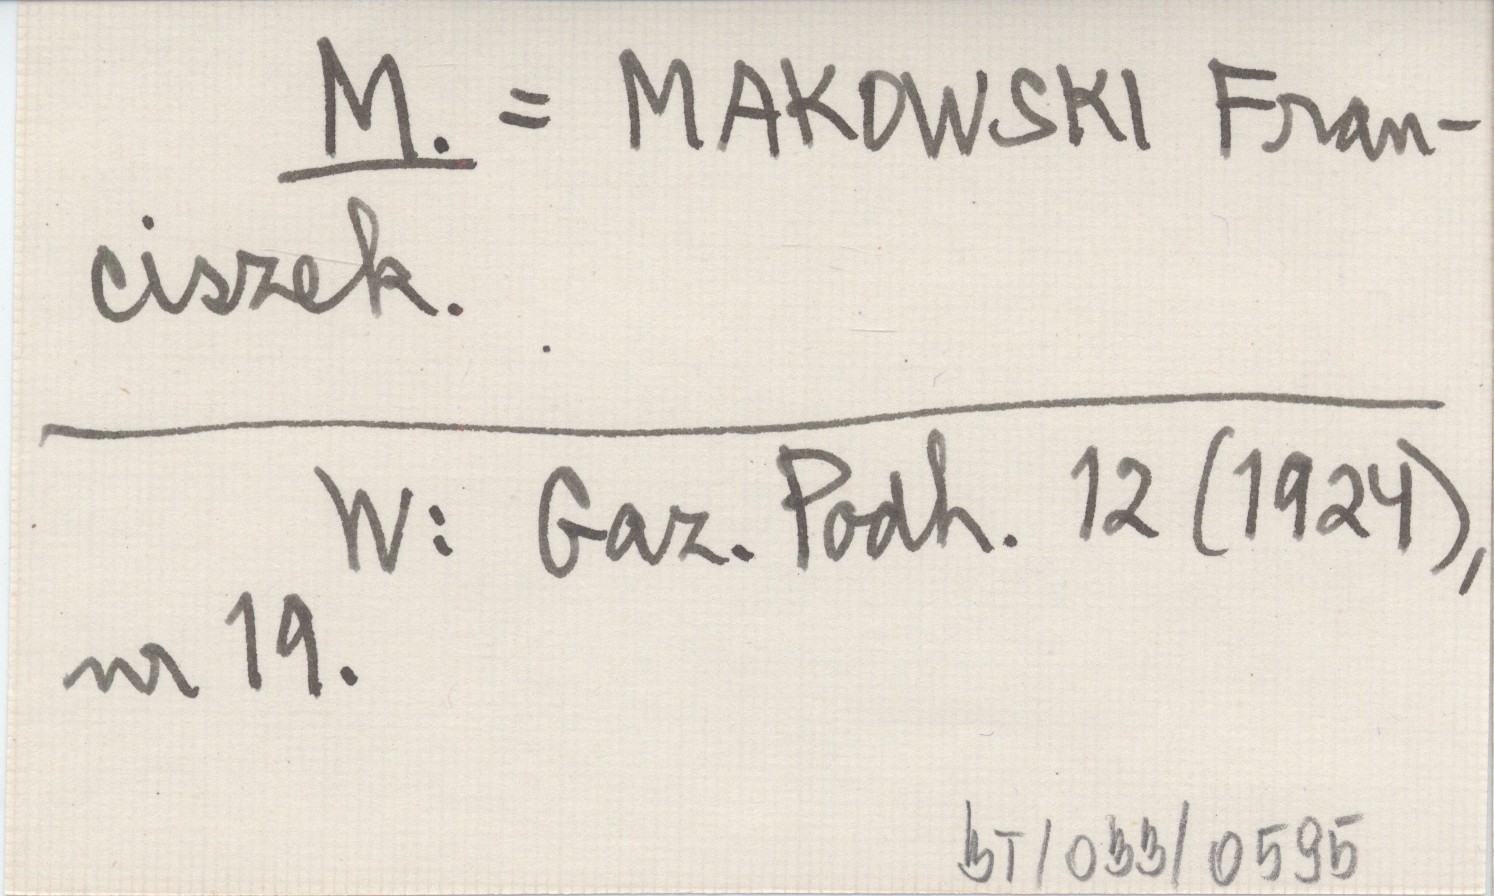 M. = MAKOWSKI Fran-
ciszek.
W: Gaz. Podh. 12 (1924),
nr 19.
BT/033/0595